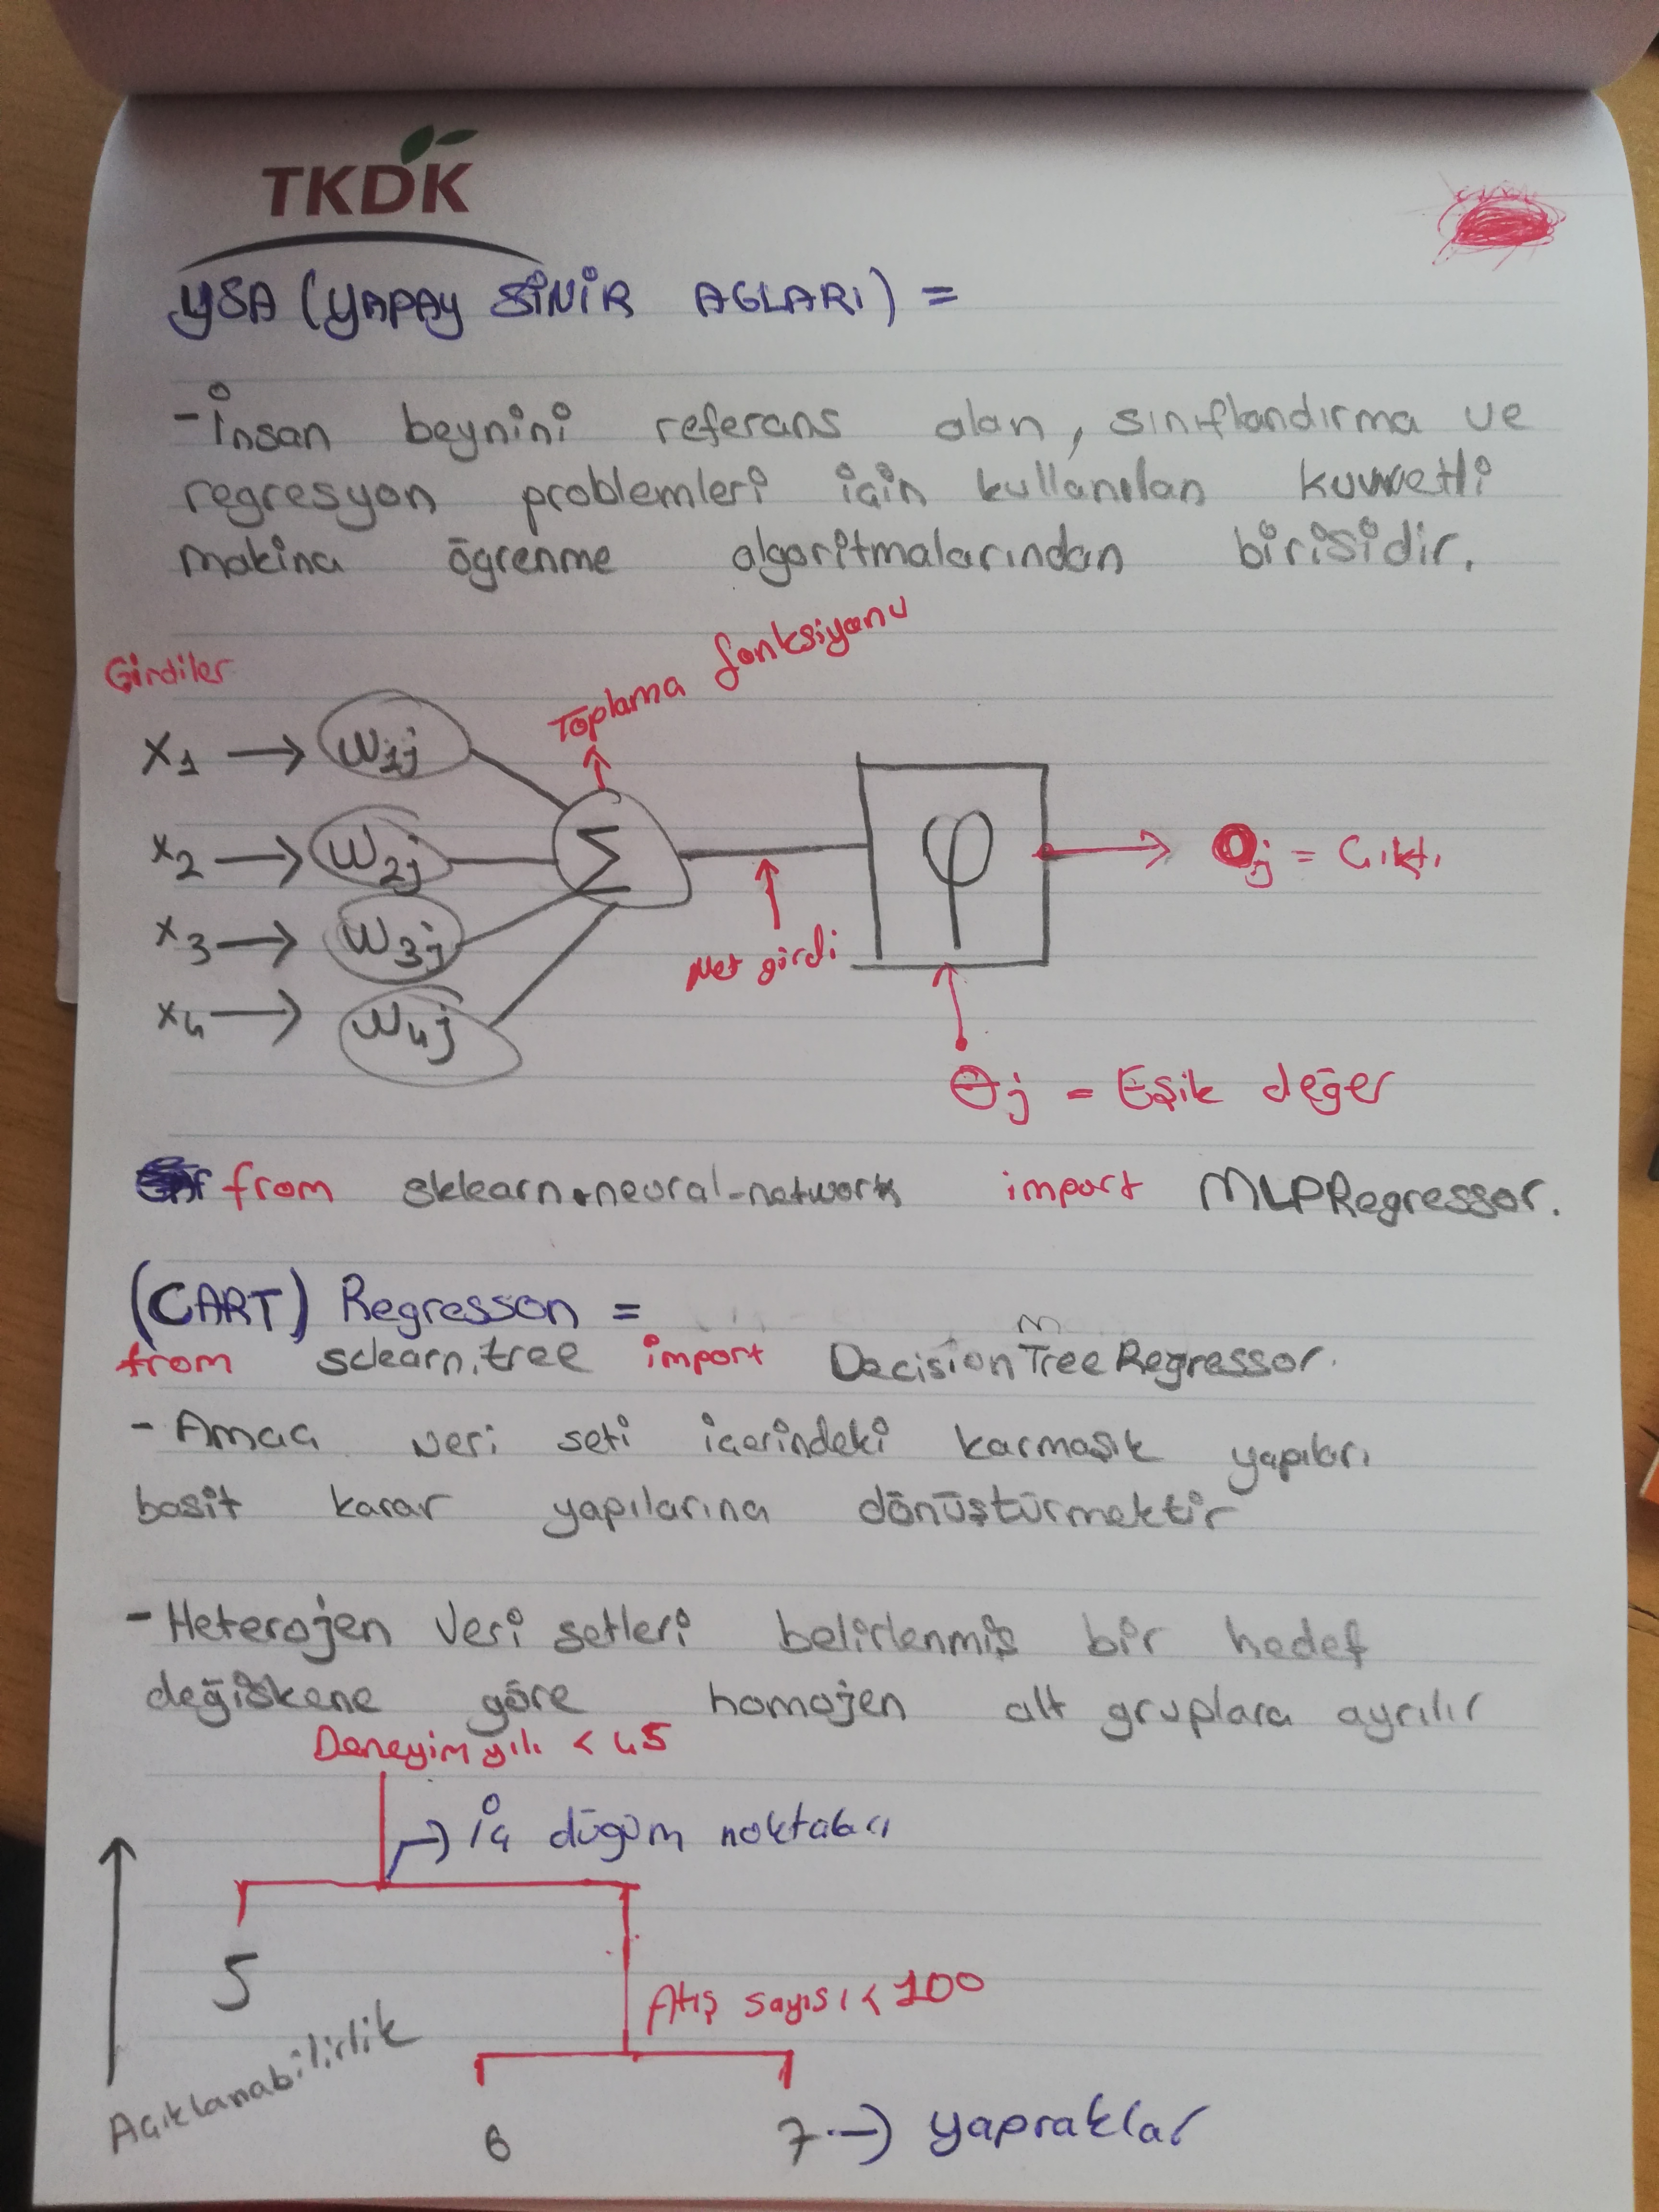 TKDK
YSA (YAPAY SİNİR AGLARI) =
- İnsan beynini referans alan, sınıflandırma ve
regresyon problemleri için kullanılan kuvvetli
makina öğrenme algoritmalarından birisidir.
Girdiler
Toplama fonksiyonu
x1 → w1j
x2 → w2j
x3 → w3j
x4 → w4j
Σ
φ
Oj = Çıktı
Net girdi
θj = Eşik değer
from sklearn.neural-network import MLPRegressor.
(CART) Regresson =
from sclearn.tree import DecisionTreeRegressor.
- Amaç veri seti içerindeki karmaşık yapıları
basit karar yapılarına dönüştürmektir
- Heterojen Veri setleri belirlenmiş bir hedef
değişkene göre homojen alt gruplara ayrılır
Deneyim yılı < 4.5
→ İç düğüm noktaları
5
Atış sayısı < 100
Açıklanabilirlik
6
7 → yapraklar